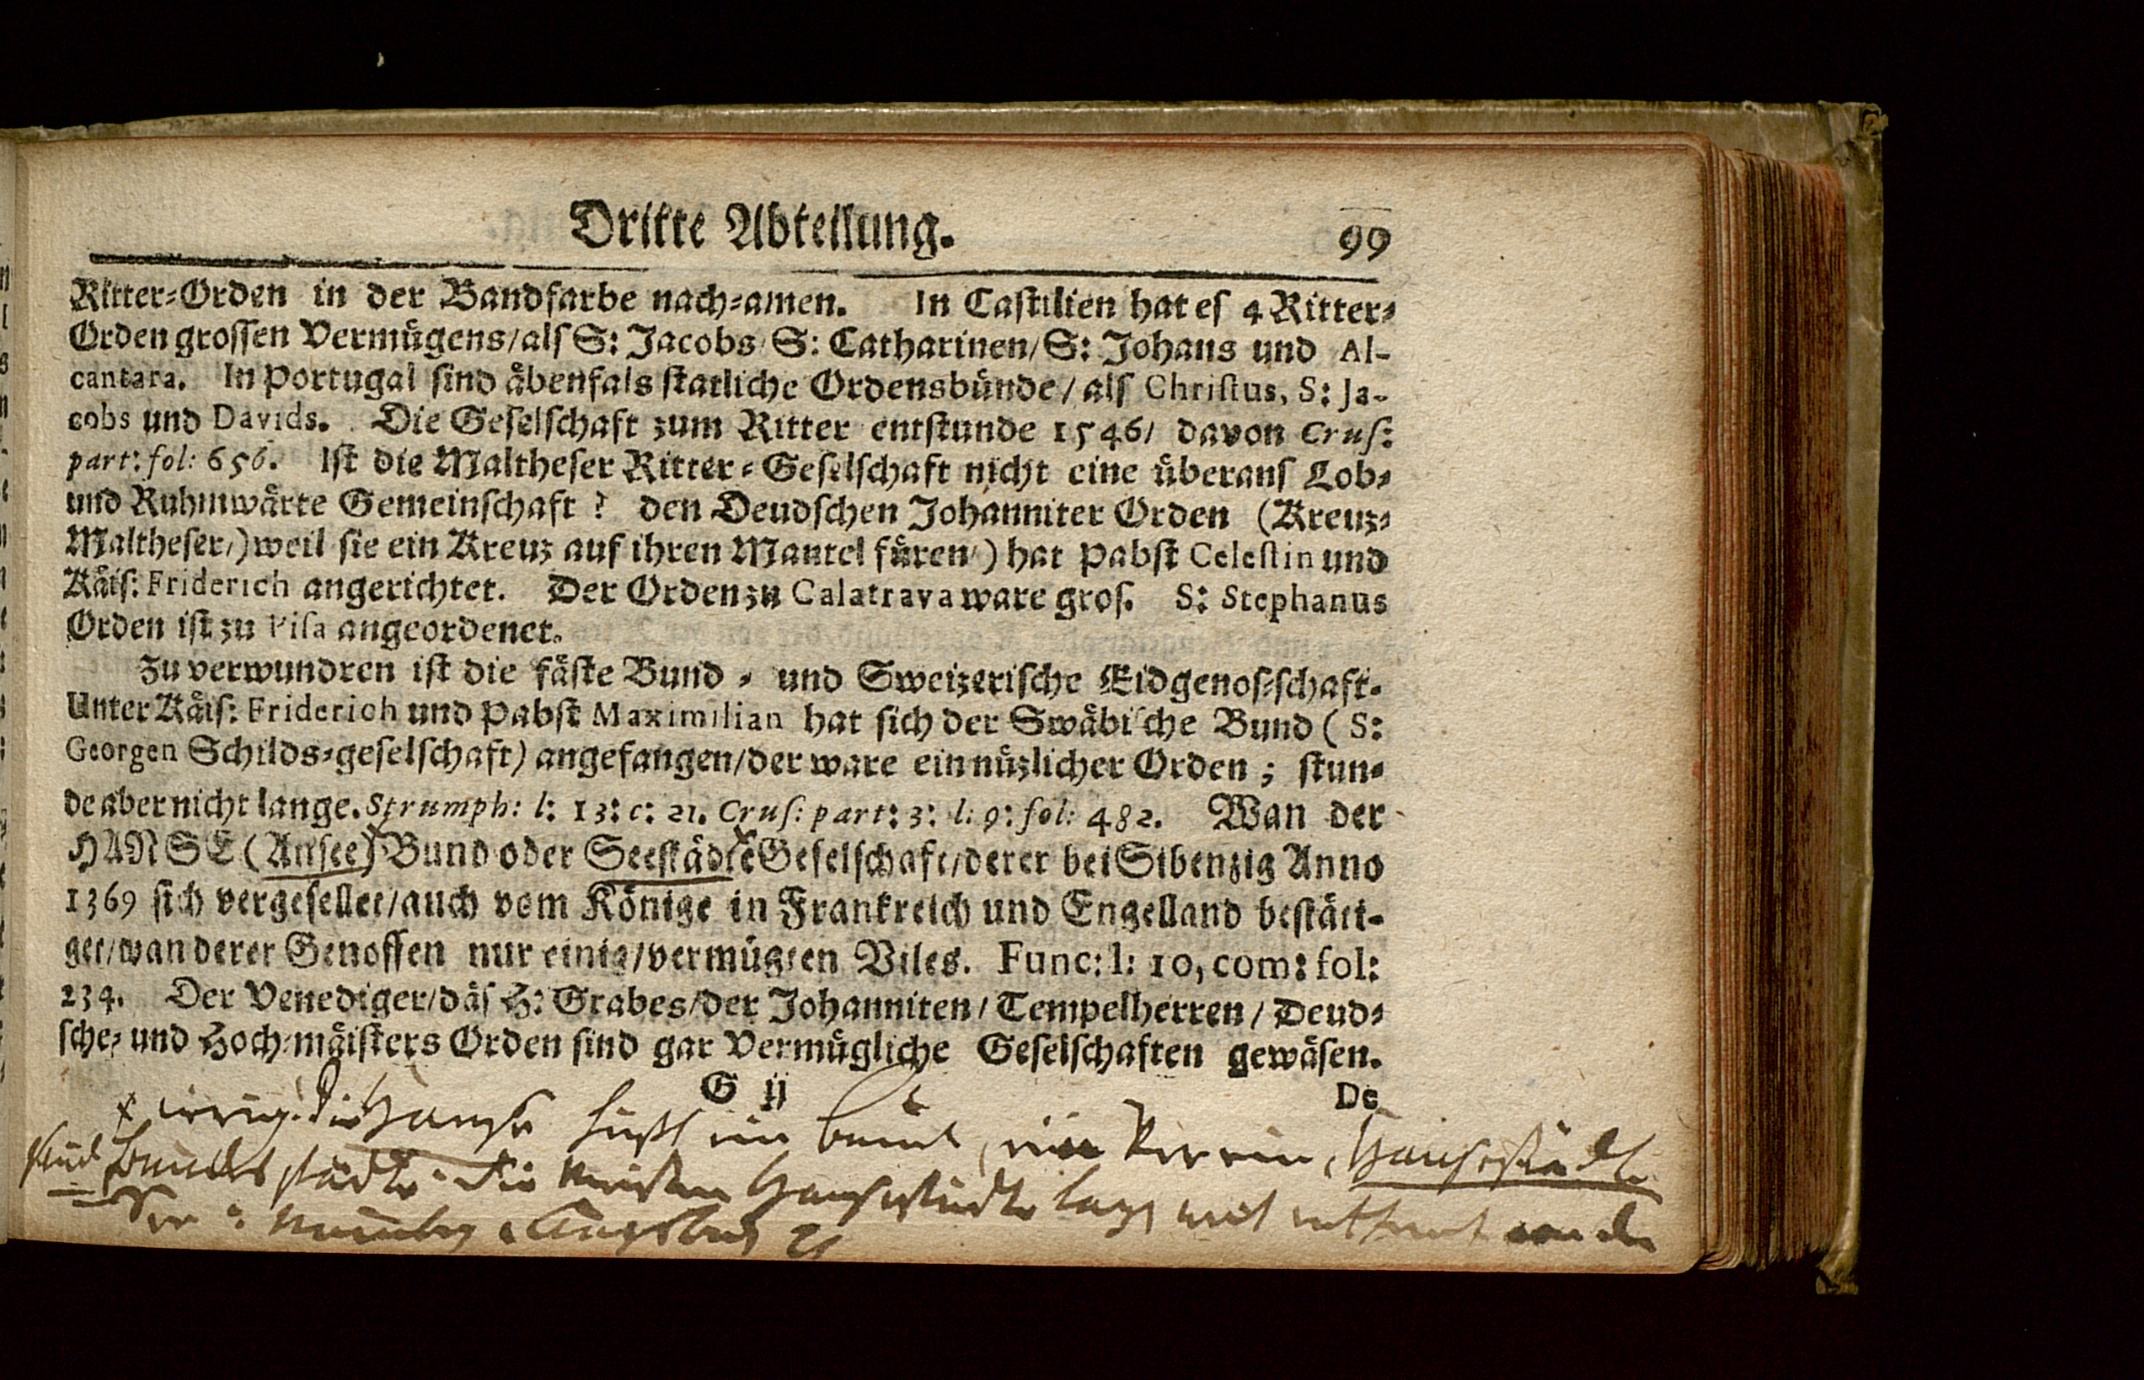 Dritte Abteilung. 99
Ritter-Orden in der Bandfarbe nach-amen. In Castilien hat es 4 Ritter-
Orden grossen Vermügens/als S: Jacobs/S: Catharinen/S: Johans und Al-
cantara. In Portugal sind äbenfals statliche Ordensbünde/als Christus, S: Ja-
cobs und Davids. Die Geselschaft zum Ritter entstunde 1546/ davon Crus:
part: fol: 656. Ist die Maltheser Ritter-Geselschaft nicht eine überaus Lob-
und Ruhmwärte Gemeinschaft? den Deudschen Johanniter Orden (Kreuz-
Maltheser/) weil sie ein Kreuz auf ihren Mantel füren/) hat Pabst Celestin und
Käis: Friderich angerichtet. Der Orden zu Calatrava ware gros. S: Stephanus
Orden ist zu Pisa angeordenet.
Zu verwundren ist die fäste Bund- und Sweizerische Eidgenos-schaft.
Unter Käis: Friderich und Pabst Maximilian hat sich der Swäbische Bund (S:
Georgen Schilds-geselschaft) angefangen/der ware ein nüzlicher Orden; stun-
de aber nicht lange. Strumph: l: 13: c: 21. Crus: part: 3: l: 9: fol: 482. Wan der
HANSE (Ansee) Bund oder Seestädte Geselschaft/derer bei Sibenzig Anno
1369 sich vergesellet/auch vom Könige in Frankreich und Engelland bestäti-
get/wan derer Genossen nur einig/vermügten Viles. Func: l: 10, com: fol:
234. Der Venediger/däs H: Grabes/der Johanniten/Tempelherren/Deud-
sche- und Hoch-mäisters Orden sind gar Vermügliche Geselschaften gewäsen.
G ij De
x irrig. Die Hanse heißt ein Bund, ein Verein, Hansestädte
sind Bundesstädte. Die meisten Hansestädte lagen weit entfernt von der
See: Nürnberg, Augsburg